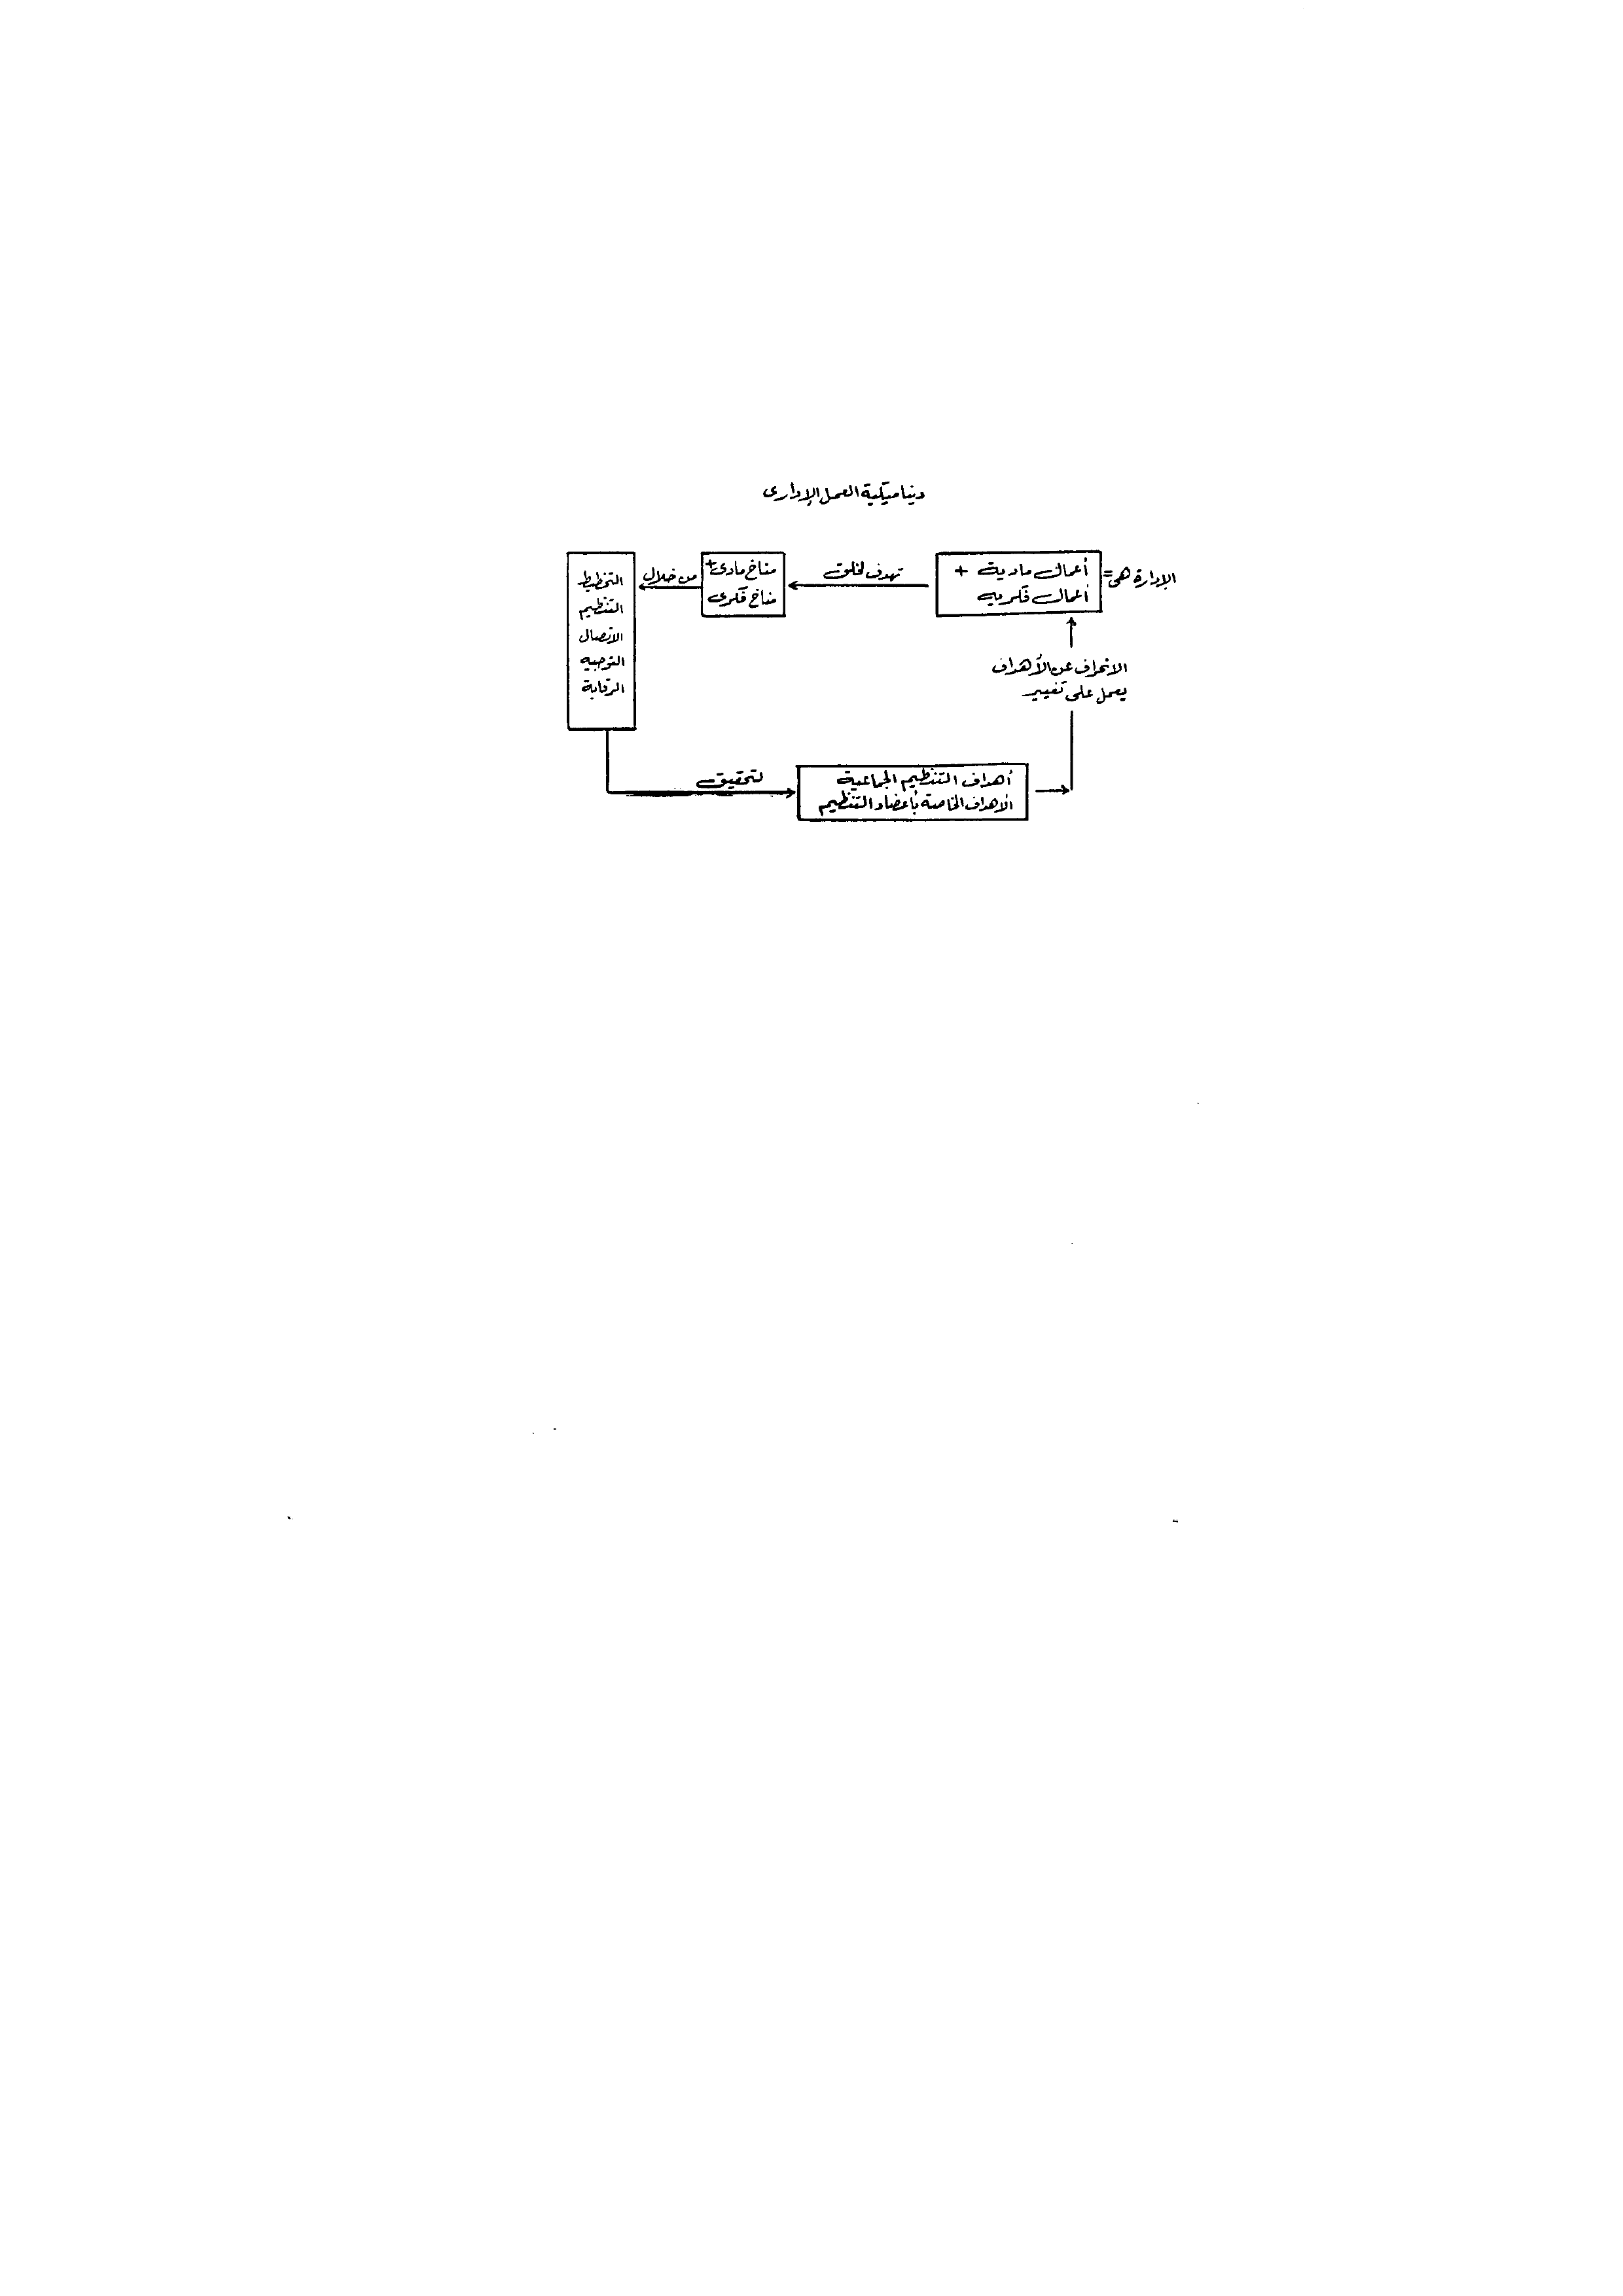 ديناميكية العمل الإدارى
الإدارة هى =
أعمال مادية +
أعمال فكرية
تهدف لخلق
مناخ مادى +
مناخ فكرى
من خلال
التخطيط
التنظيم
الاتصال
التوجيه
الرقابة
لتحقيق
أهداف التنظيم الجماعية
الأهداف الخاصة بأعضاء التنظيم
الانحراف عن الأهداف
يعمل على تغيير